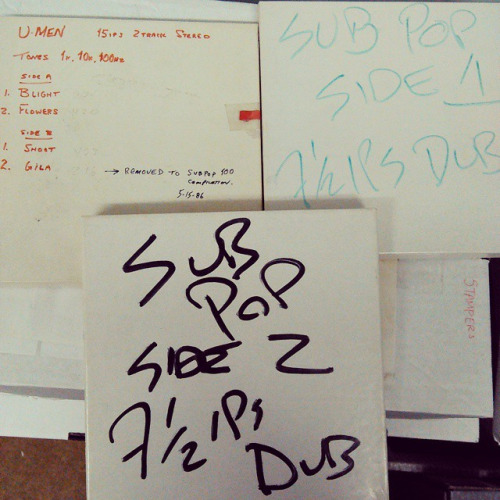 U-MEN 15 IPS 2 TRACK STEREO
TONES 1K, 10K, 100HZ
SIDE A
1. BLIGHT
2. FLOWERS
SIDE B
1. SHOOT
2. GILA
→ REMOVED TO SUBPOP 100
COMPILATION.
5-15-86
SUB POP
SIDE 1
7 1/2 IPS DUB
STAMPERS
SUB
POP
SIDE 2
7 1/2 IPS
DUB